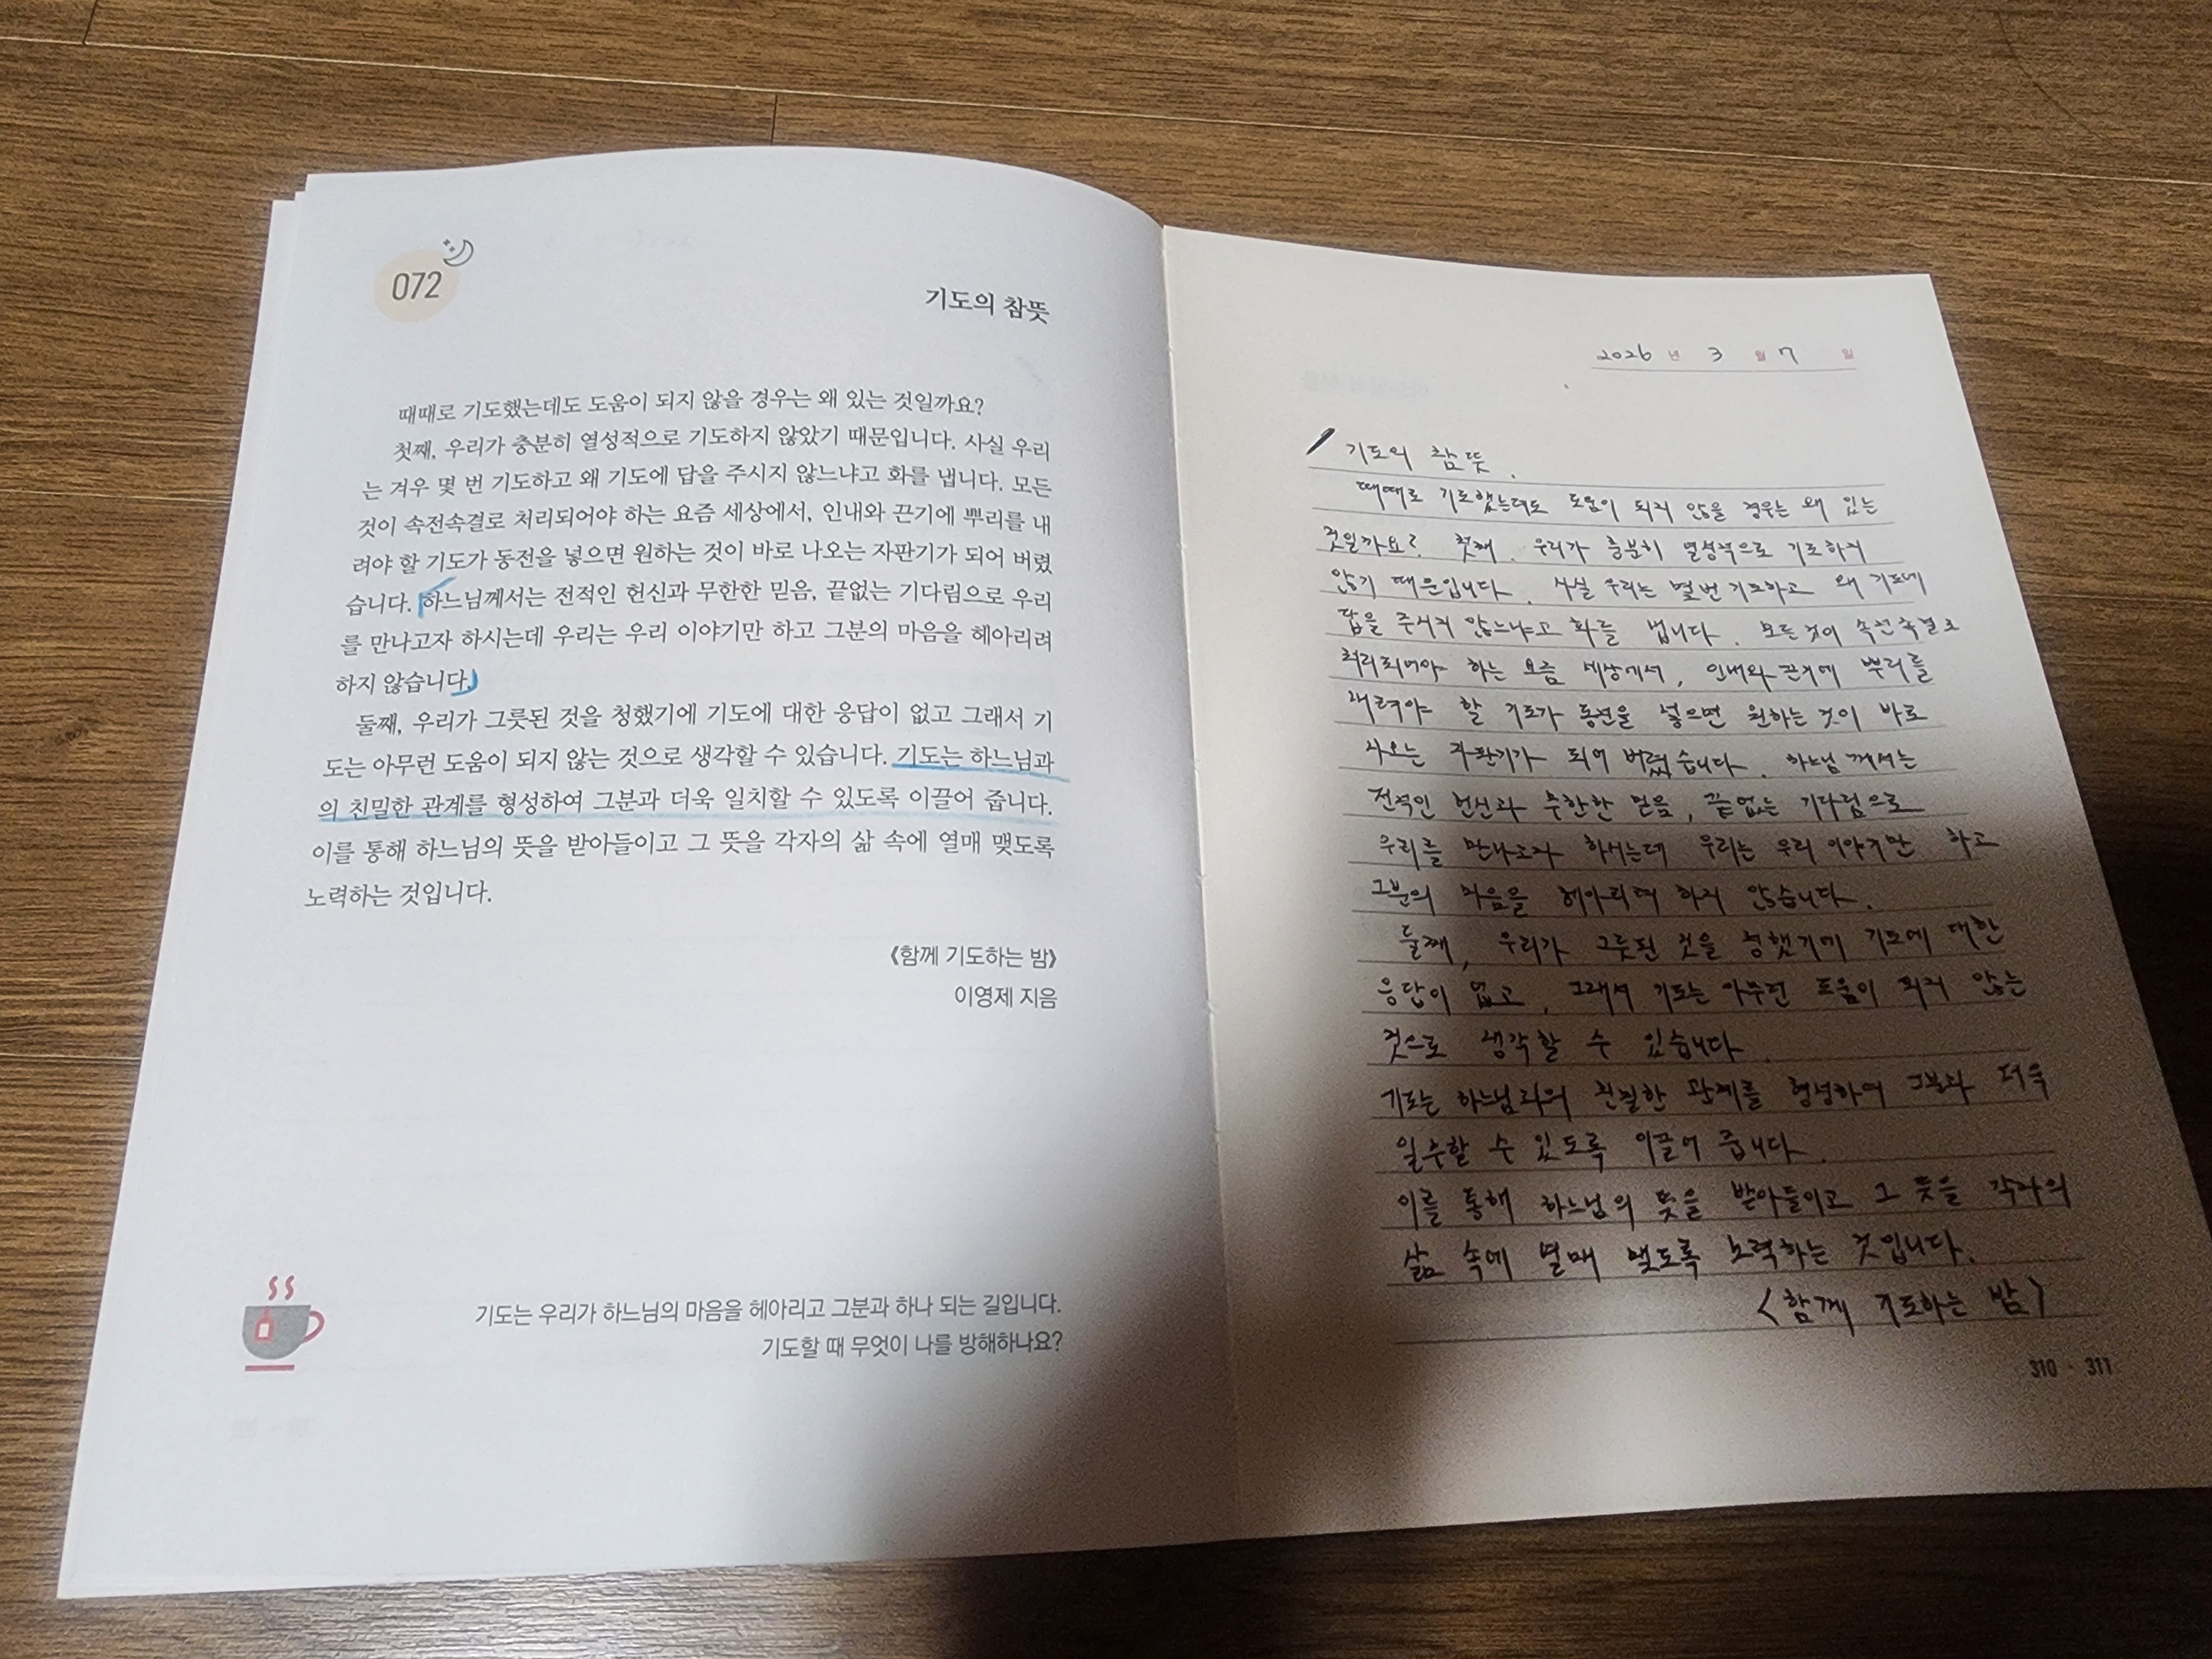 072
기도의 참뜻
때때로 기도했는데도 도움이 되지 않을 경우는 왜 있는 것일까요?
첫째, 우리가 충분히 열성적으로 기도하지 않았기 때문입니다. 사실 우리
는 겨우 몇 번 기도하고 왜 기도에 답을 주시지 않느냐고 화를 냅니다. 모든
것이 속전속결로 처리되어야 하는 요즘 세상에서, 인내와 끈기에 뿌리를 내
려야 할 기도가 동전을 넣으면 원하는 것이 바로 나오는 자판기가 되어 버렸
습니다. 하느님께서는 전적인 헌신과 무한한 믿음, 끝없는 기다림으로 우리
를 만나고자 하시는데 우리는 우리 이야기만 하고 그분의 마음을 헤아리려
하지 않습니다.
둘째, 우리가 그릇된 것을 청했기에 기도에 대한 응답이 없고 그래서 기
도는 아무런 도움이 되지 않는 것으로 생각할 수 있습니다. 기도는 하느님과
의 친밀한 관계를 형성하여 그분과 더욱 일치할 수 있도록 이끌어 줍니다.
이를 통해 하느님의 뜻을 받아들이고 그 뜻을 각자의 삶 속에 열매 맺도록
노력하는 것입니다.
《함께 기도하는 밤》
이영제 지음
기도는 우리가 하느님의 마음을 헤아리고 그분과 하나 되는 길입니다.
기도할 때 무엇이 나를 방해하나요?
2026 년 3 월 7 일
기도의 참뜻.
때때로 기도했는데도 도움이 되지 않을 경우는 왜 있는
것일까요? 첫째. 우리가 충분히 열성적으로 기도하지
않기 때문입니다. 사실 우리는 몇번 기도하고 왜 기도에
답을 주시지 않느냐고 화를 냅니다. 모든 것이 속전속결로
처리되어야 하는 요즘 세상에서, 인내와 끈기에 뿌리를
내려야 할 기도가 동전을 넣으면 원하는 것이 바로
나오는 자판기가 되어 버렸습니다. 하느님 께서는
전적인 헌신과 무한한 믿음, 끝없는 기다림으로
우리를 만나고자 하시는데 우리는 우리 이야기만 하고
그분의 마음을 헤아리려 하지 않습니다.
둘째, 우리가 그릇된 것을 청했기에 기도에 대한
응답이 없고, 그래서 기도는 아무런 도움이 되지 않는
것으로 생각할 수 있습니다.
기도는 하느님과의 친밀한 관계를 형성하여 그분과 더욱
일수할 수 있도록 이끌어 줍니다.
이를 통해 하느님의 뜻을 받아들이고 그 뜻을 각자의
삶 속에 열매 맺도록 노력하는 것입니다.
<함께 기도하는 밤>
310 · 311